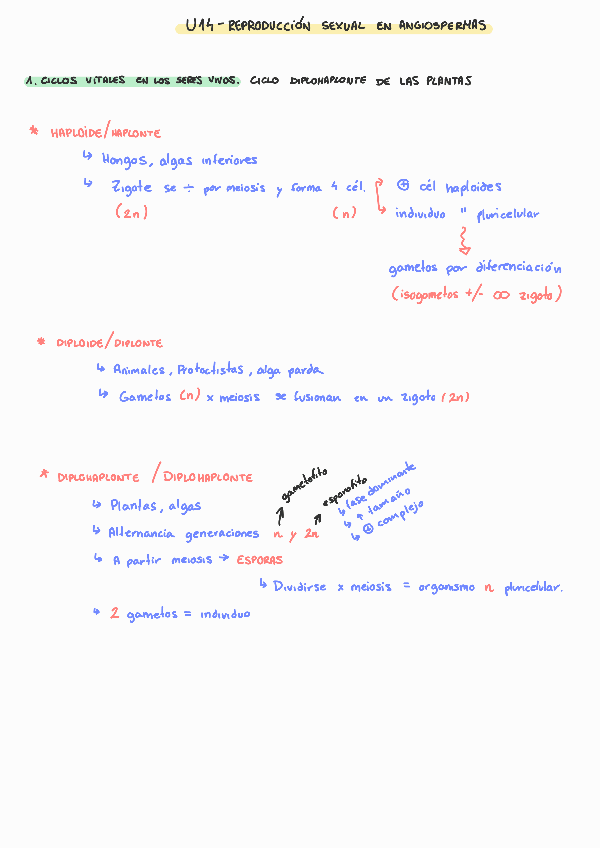 U14 - REPRODUCCIÓN SEXUAL EN ANGIOSPERMAS
1. CICLOS VITALES EN LOS SERES VIVOS. CICLO DIPLOHAPLONTE DE LAS PLANTAS
* HAPLOIDE/HAPLONTE
↳ Hongos, algas inferiores
↳ Zigote se ÷ por meiosis y forma 4 cél. ⊕ cél haploides
(2n) (n) ↳ individuo " pluricelular
gametos por diferenciación
(isogametos +/- ∞ zigoto)
* DIPLOIDE/DIPLONTE
↳ Animales, Protoctistas, alga parda
↳ Gametos (n) x meiosis se fusionan en un zigoto (2n)
* DIPLOHAPLONTE / DIPLOHAPLONTE
gametofito
esporofito
↳ fase dominante
↳ ↑ tamaño
↳ ⊕ complejo
↳ Plantas, algas
↳ Alternancia generaciones n y 2n
↳ A partir meiosis → ESPORAS
↳ Dividirse x meiosis = organismo n pluricelular.
↳ 2 gametos = individuo